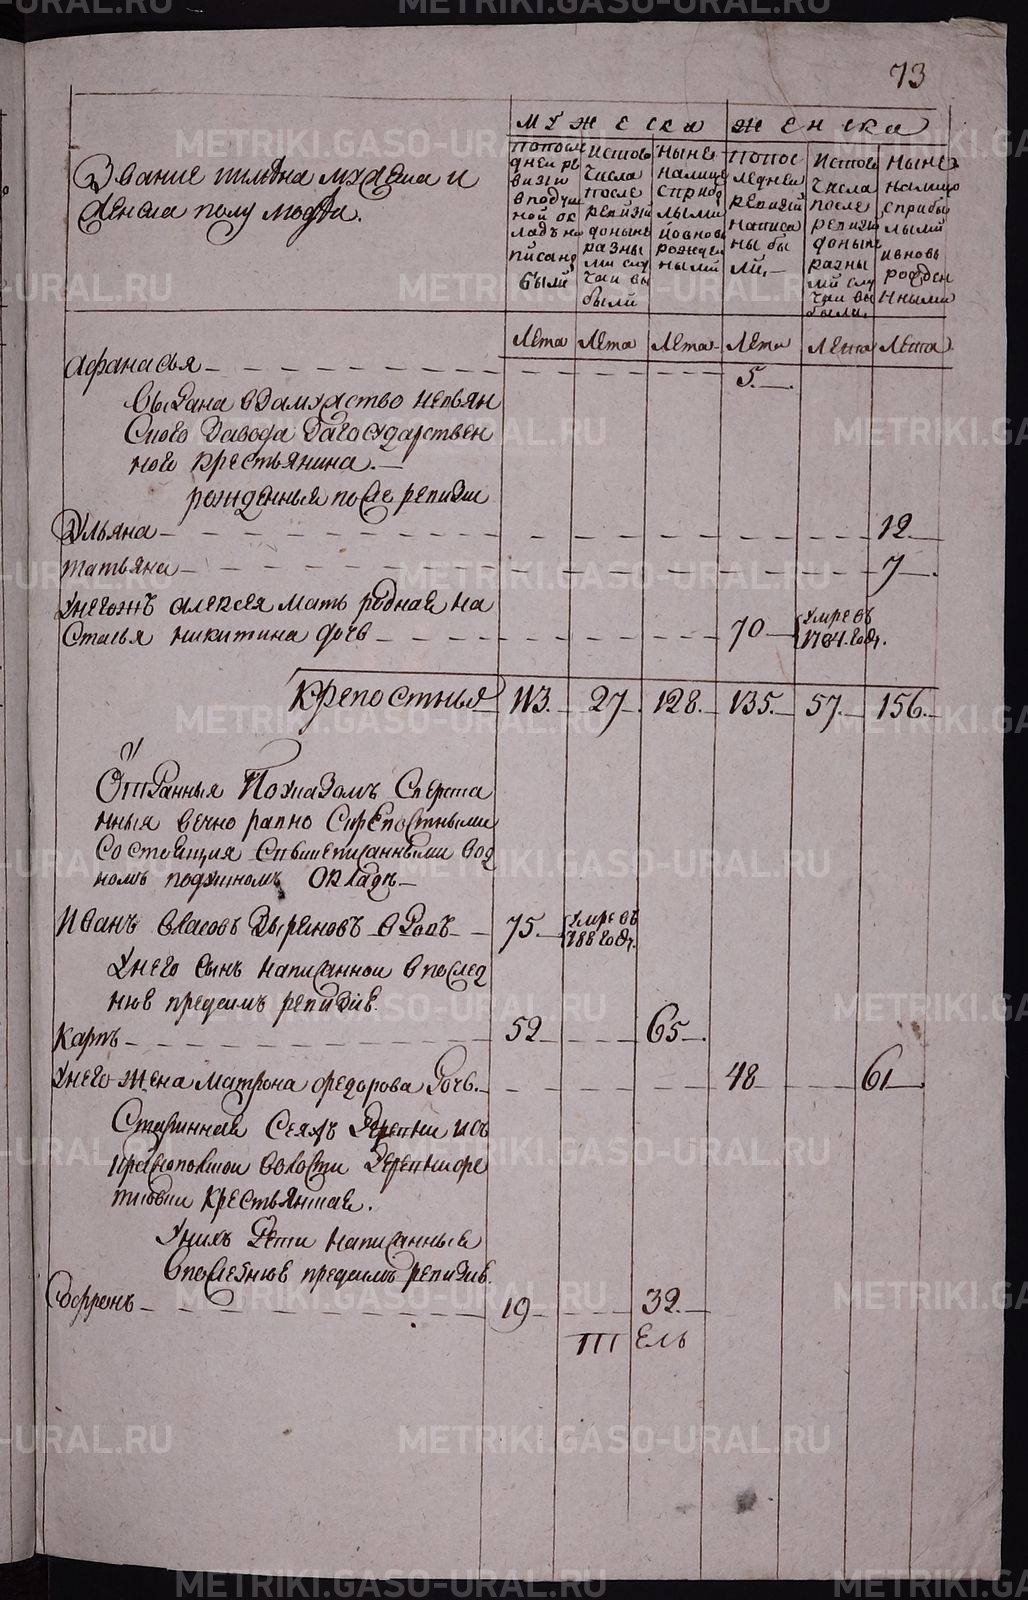 73
мужеска женска
Звание мужеска и
женска полу людей.
По после
дней ре
визии
в подуш
ной ок
ладъ на
писано
были
ис того
числа
после
ревизии
доныне
разны
ми слу
чаи вы
были
ныне
на лице
с прибы
лыми
и вновь
рожден
ными
по пос
ледней
ревизии
написа
ны бы
ли
ис того
числа
после
ревизии
доныне
разны
ми слу
чаи вы
были
ныне
на лицо
с прибы
лыми
и вновь
рожден
ными
Лета Лета Лета Лета Лета Лета
Афанасья 5.
выдана взамужство невьян
ского завода загосударствен
ного крестьянина.
рожденныя после ревизии
Ульяна 12.
татьяна 7.
Унегожъ алексея мать родная на
стасья никитина дочь 70 Умре въ
1784. году.
Крепостныя 113. 27. 128. 135. 57. 156.
Отданныя По указомъ сверста
нныя вечно равно с крепостными
состоящия с вышеписанными вод
номъ подушномъ окладе
Иванъ власовъ Зыряновъ вдовъ 75. Умре въ
788 году.
Унего сынъ написанной впослед
нюю предсимъ ревизию.
Карпъ 52 65.
Унего жена матрона федорова дочь. 48 61
Старинная сеяжъ деревни
волости деревни
крестьянская.
Унихъ дети написанныя
впоследнюю предсимъ ревизию.
Софронъ 19 32.
тель
METRIKI.GASO-URAL.RU